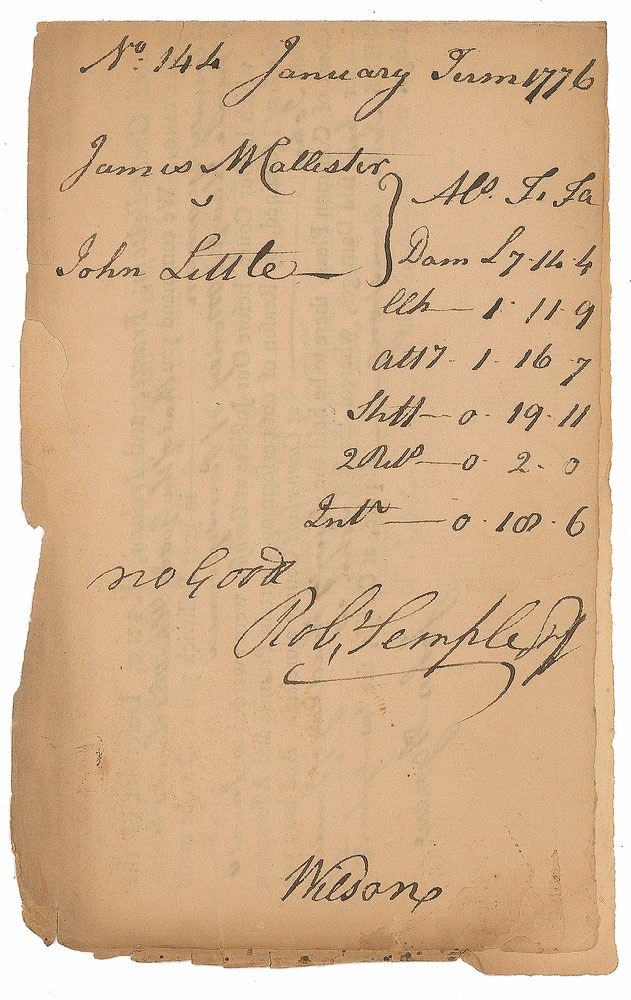 No. 144 January Term 1776
James McCallister
v
John Little
Als. Fi Fa
Dam £7 - 14 - 4
Clk — 1 - 11 - 9
Att - 1 - 16 - 7
Shff — 0 - 19 - 11
— 0 - 2 - 0
Intt — 0 - 10 - 6
no Good
Robt Temple
Wilson